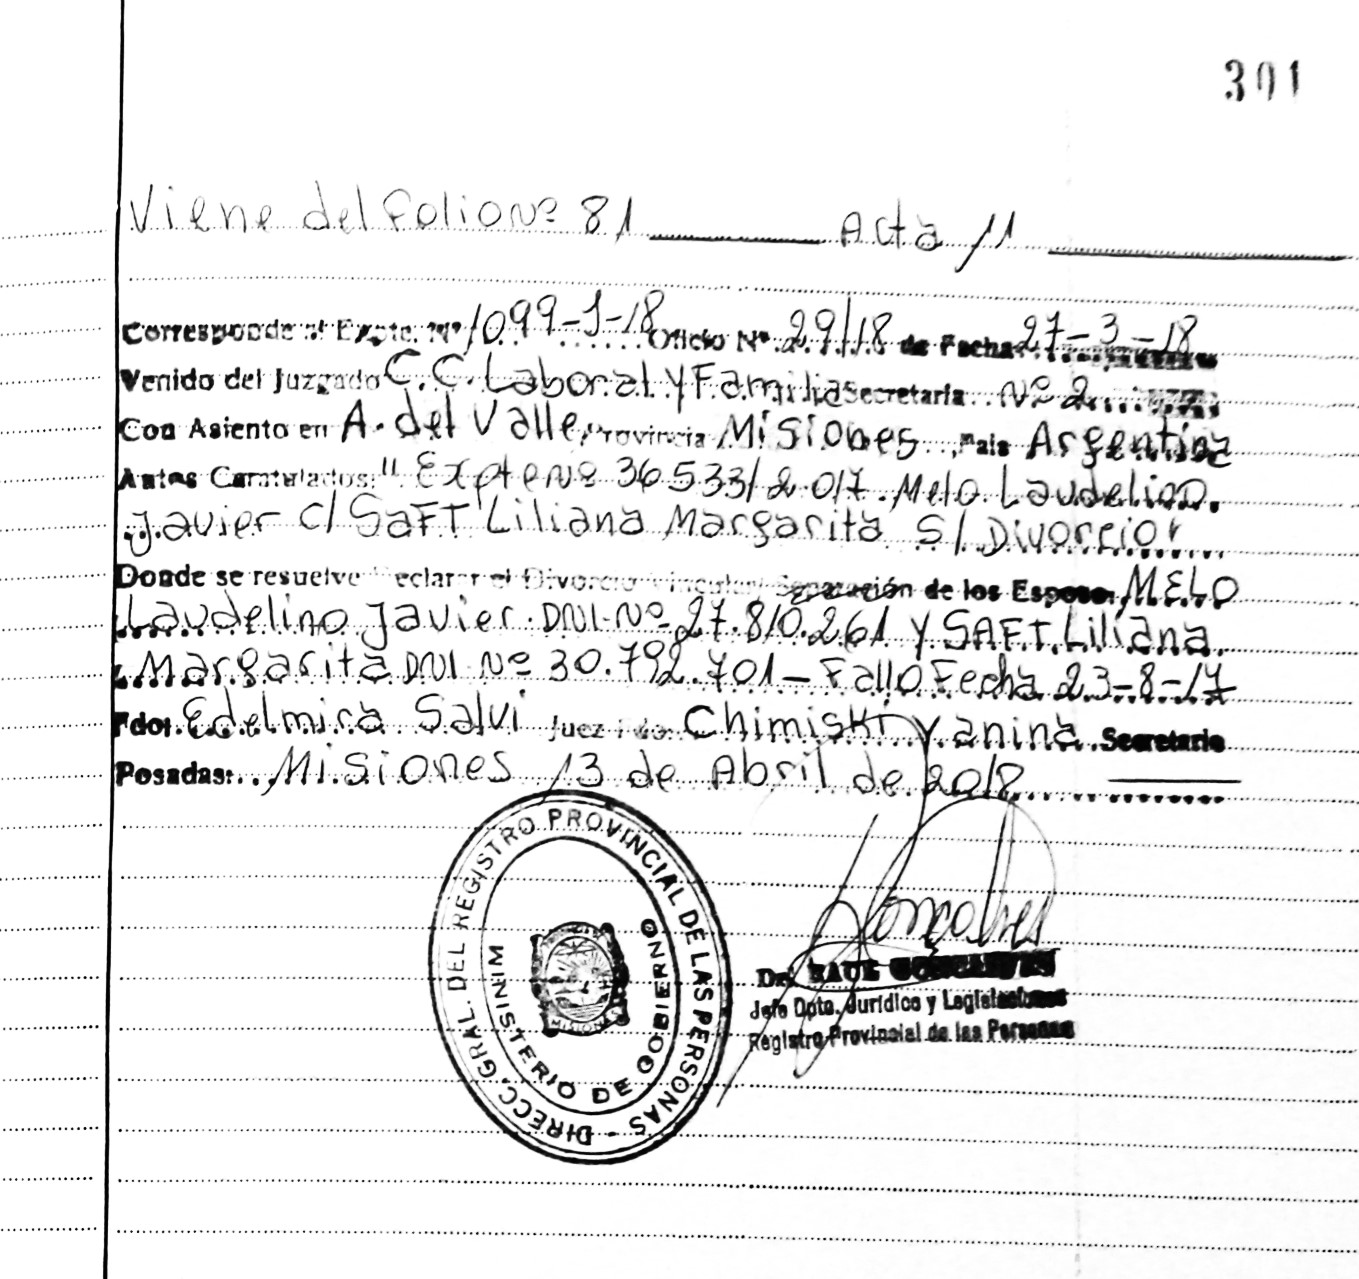 301
Viene del folio Nº 81 Acta 11
Corresponde al Expte. Nº 1099-J-18 Oficio Nº 29/18 de Fecha 27-3-18
Venido del Juzgado C.C. Laboral y Familia Secretaria Nº 2
Con Asiento en A. del Valle Provincia Misiones, Pais Argentina
Autos Caratulados: "Expte Nº 36533/2017. Melo Laudelino
Javier c/ SAFT Liliana Margarita S/ Divorcio"
Donde se resuelve Declarar el Divorcio Vincular Separación de los Esposos MELO
Laudelino Javier. DNI-Nº 27.810.261 Y SAFT. Liliana.
Margarita DNI Nº 30.792.701 - Fallo Fecha 23-8-17
Fdo: Edelmira Salvi Juez Fdo: Chimiski Yanina Secretario
Posadas: Misiones 13 de Abril de 2018
DIRECC. GRAL. DEL REGISTRO PROVINCIAL DE LAS PERSONAS -
MINISTERIO DE GOBIERNO
MISIONES
Dr. RAUL GONCALVES
Jefe Dpto. Juridico y Legislaciones
Registro Provincial de las Personas